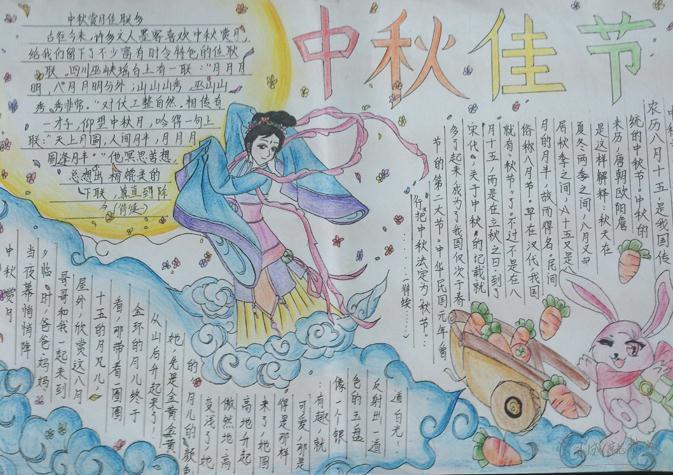 中秋佳节
中秋赏月佳联多
古往今来，许多文人墨客喜欢中秋赏月
给我们留下了不少富有时令特色的佳联
联。四川巫峡瑶台上有一联：“月月月
明，八月月明分外；山山山秀，巫山山
秀非常。”对仗工整自然。相传有
一才子，仰望中秋月，吟得一句上
联：“天上月圆，人间月半，月月月
圆逢月半。”他冥思苦想，
总想出相馈夫的
下联，
农历八月十五，是我国传
统的中秋节。中秋的
来历，唐朝欧阳詹
是这样解释：秋天在
夏冬两季之间，八月又
居秋季之间，八十五又是
月的月半，故而得名。民间
俗称八月节。早在汉代我国
就有“秋节”了，不过不是在八
月十五，而是在立秋之日。到了
宋代，关于中秋的记载就
多了起来，成为了我国仅次于春
节的第二大节。中华民国元年曾
作把中秋法定为“秋节”…
中秋赏月
当夜幕悄悄降
临时，爸爸妈妈
哥哥和我一起来到
屋外，欣赏这八月
十五的月儿。月儿
看，那带着一圈圈
金环的月儿终于
从山后升起来了，
她先是金黄金黄
的，月儿的颜色
变浅了，她
傲然地高
高地升起
来了，地圆
得是那样
可爱，那是
有趣，就
像一个银
色的玉盘
反射出一道
道白光…